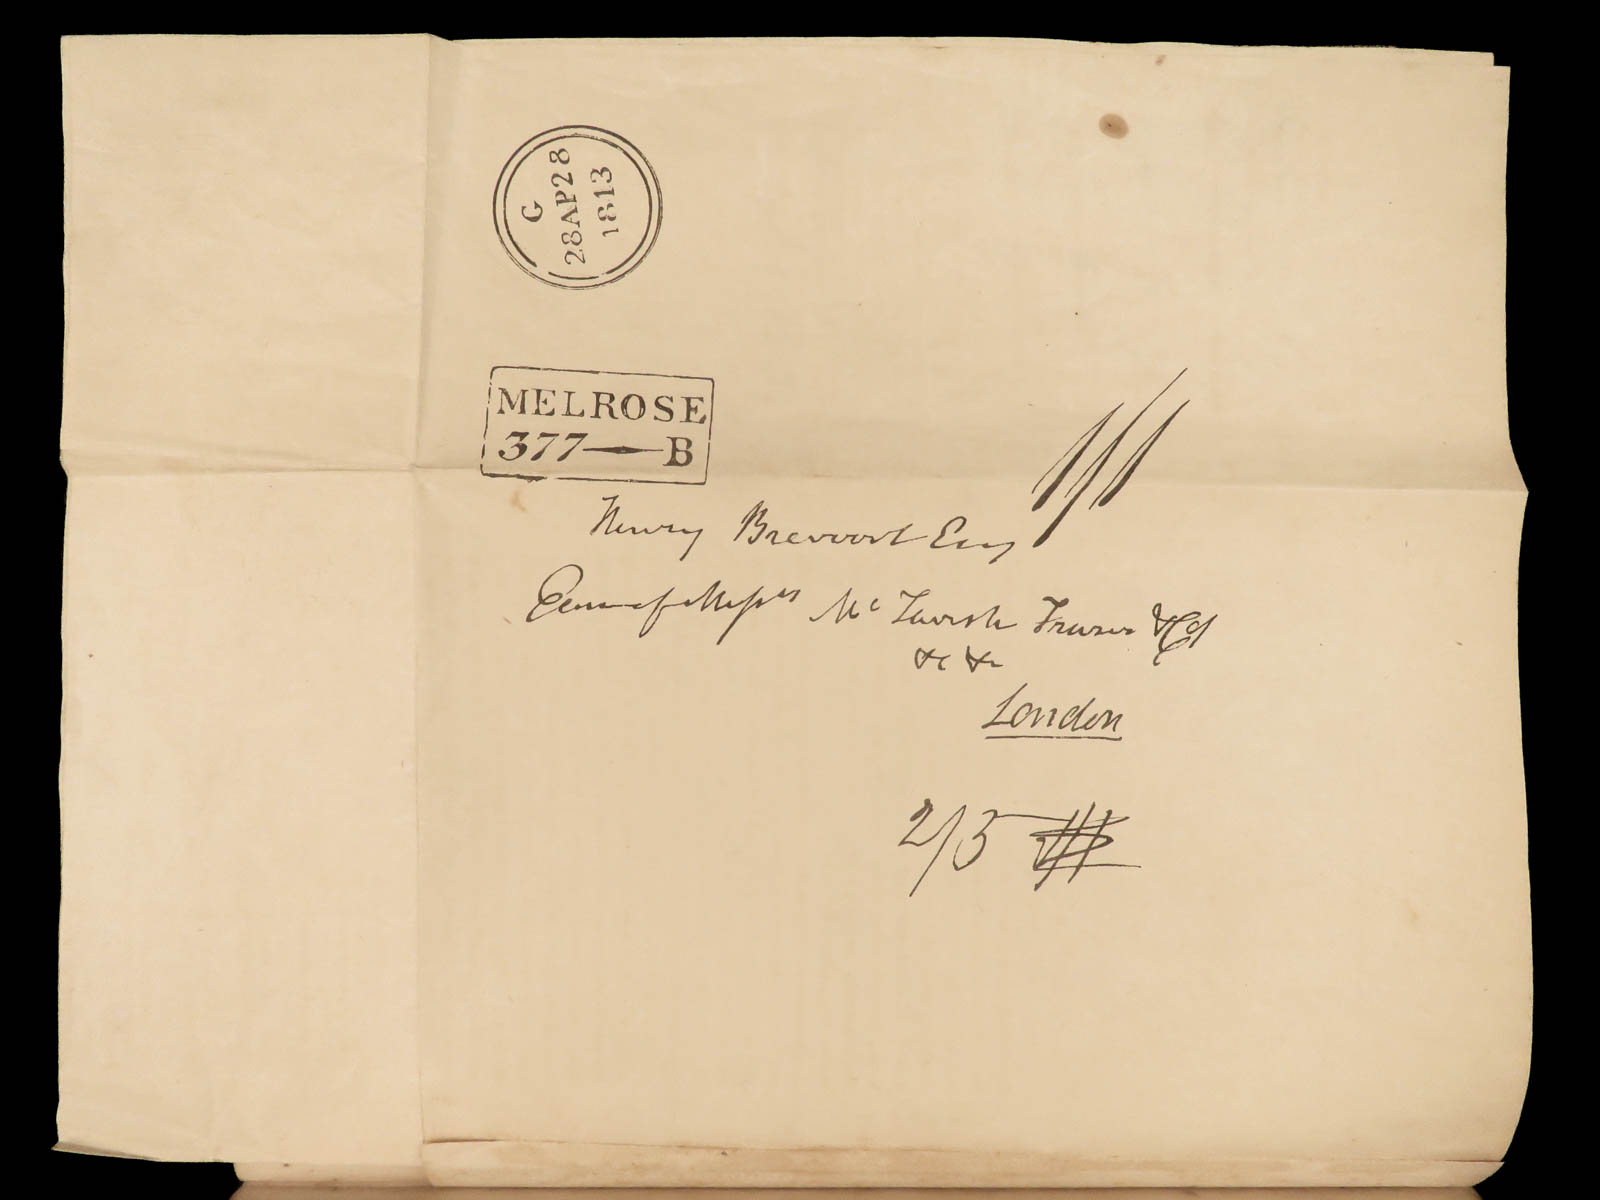 G
28AP28
1813
MELROSE
377 — B
Henry Brevoort Esq
Care of Messrs Mc Tavish Fraser & Co
&c &c
London
2/5